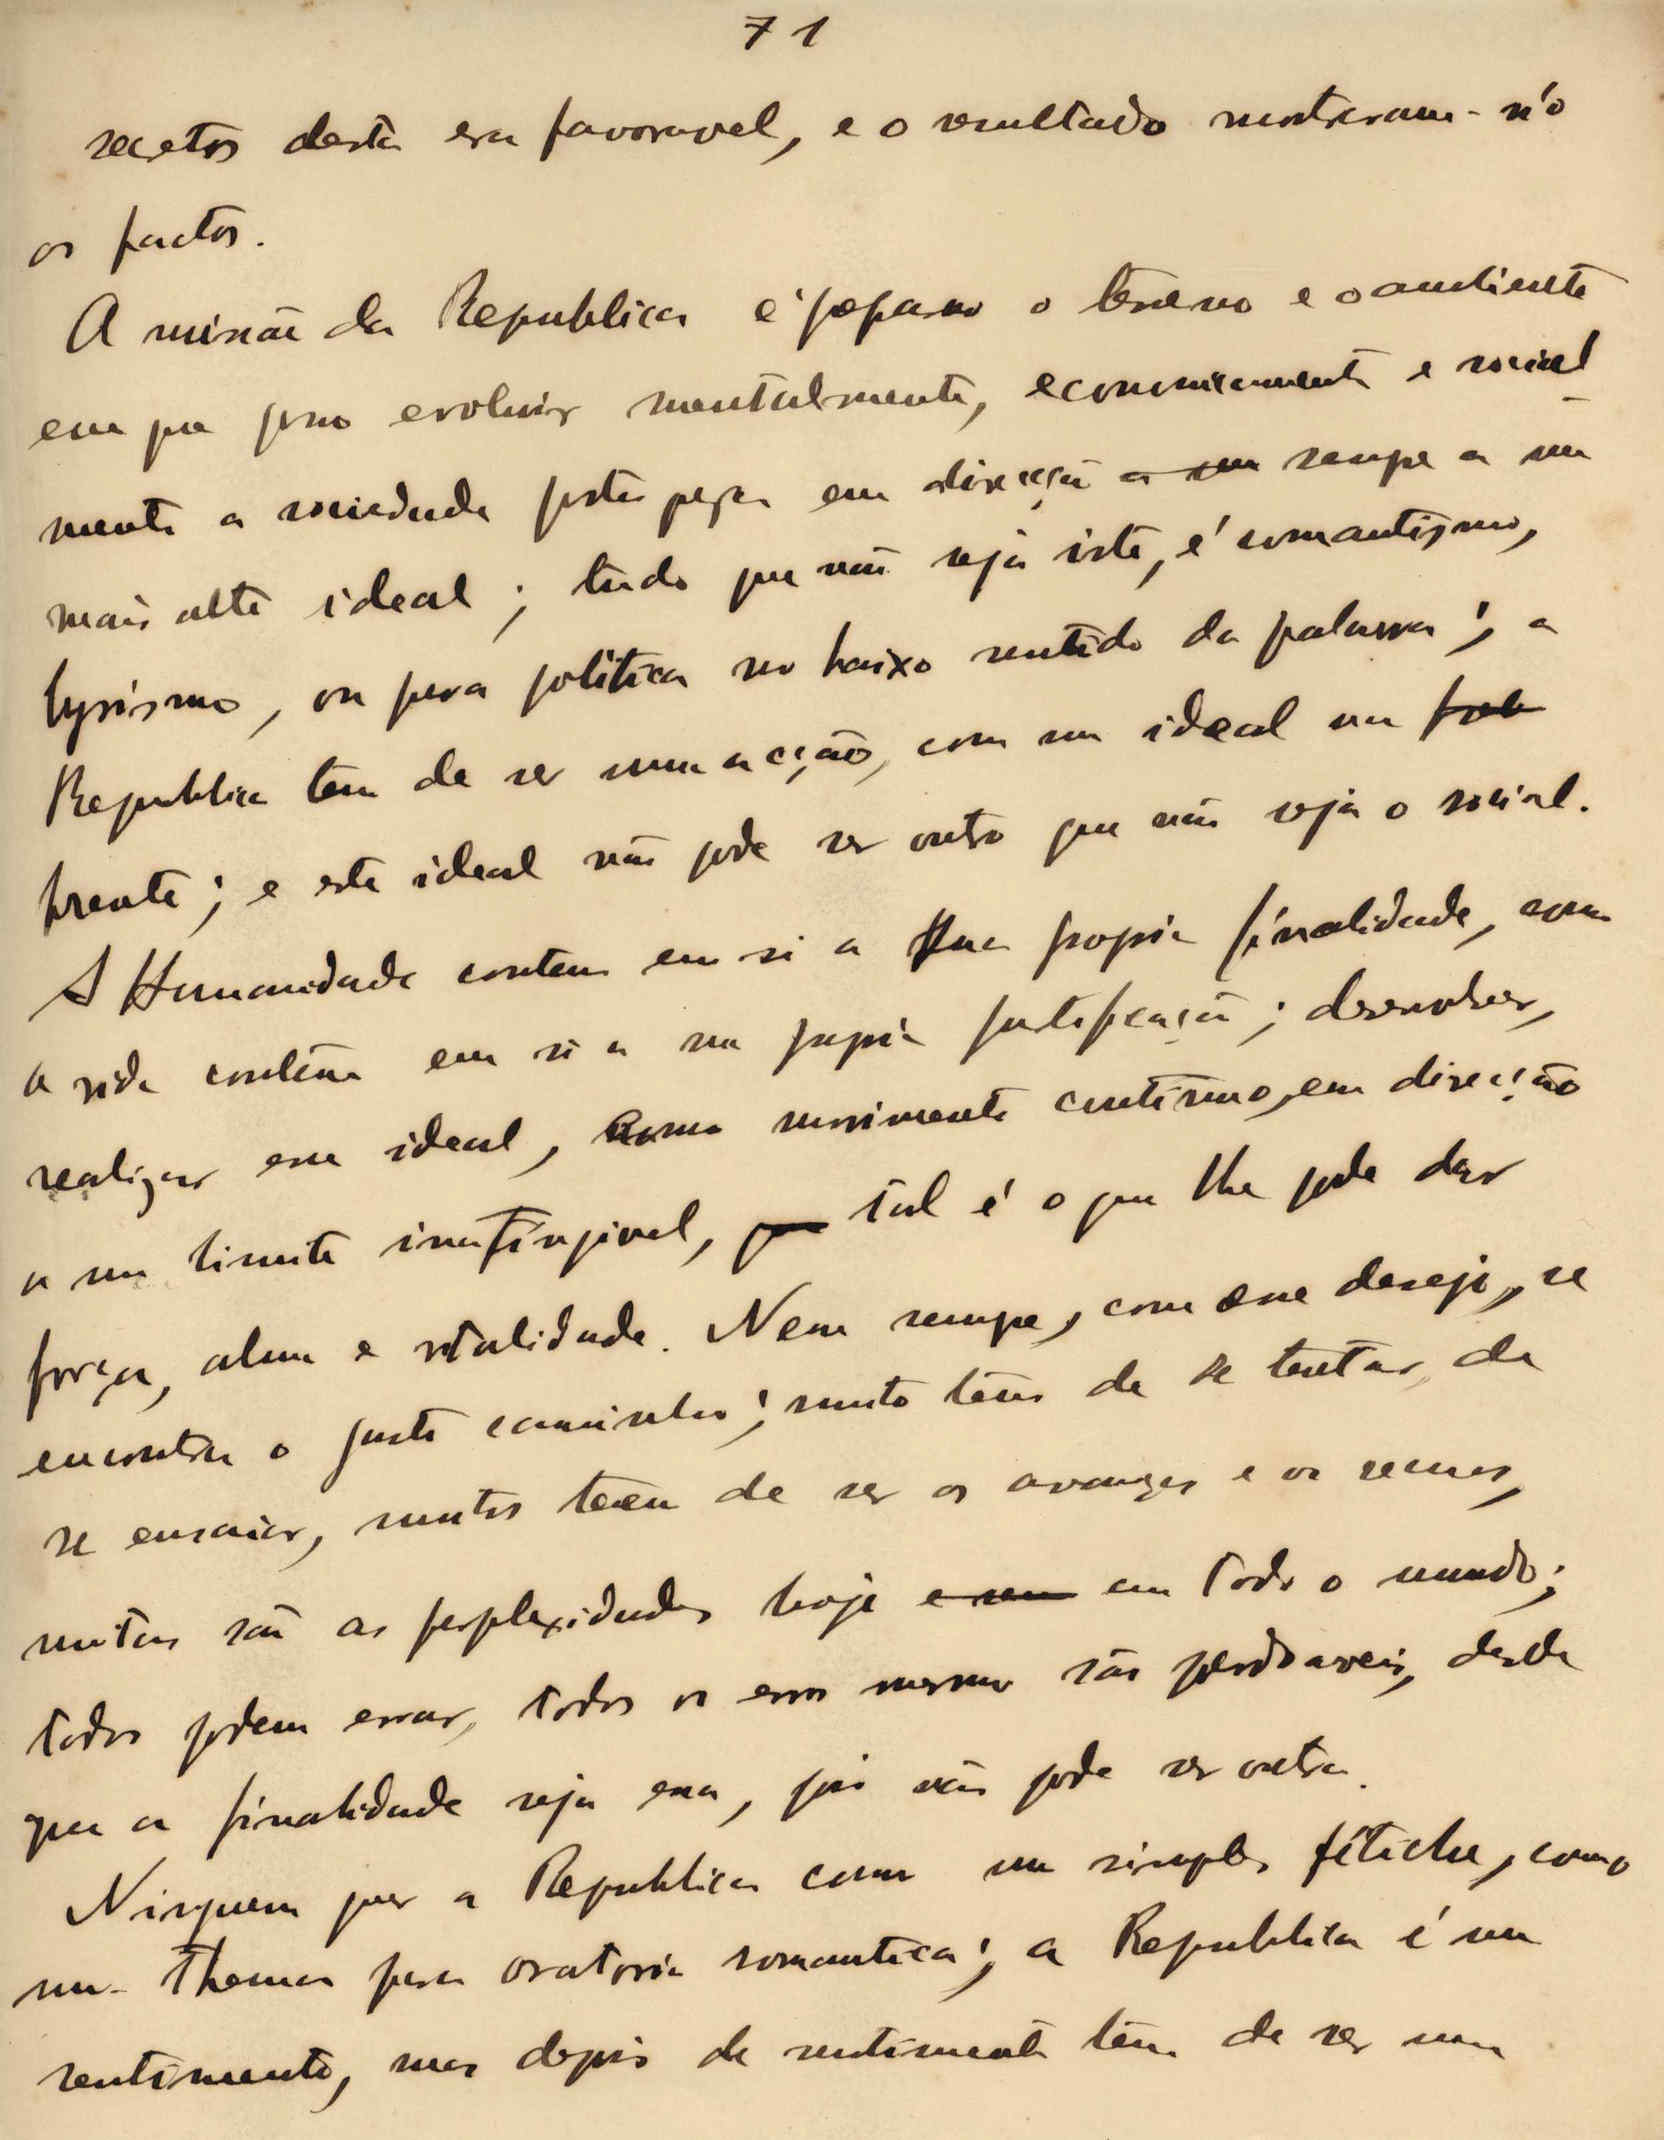 71
secretos desta era favoravel, e o resultado mostraram-n'o
os factos.
A missão da Republica é preparar o terreno e o ambiente
em que possa evoluir mentalmente, economicamente e social-
mente a sociedade portugueza em direcção a um sempre a um
mais alto ideal; tudo que não seja isto, é romantismo,
lyrismo, ou pura politica no baixo sentido da palavra; a
Republica tem de ser uma acção, com um ideal na
frente; e este ideal não pode ser outro que não seja o social.
A Humanidade contem em si a sua propria finalidade, como
a vida contém em si a sua propria justificação; desenvolver,
realizar esse ideal, como movimento continuo, em direcção
a um limite inatingivel, que tal é o que lhe pode dar
força, alma e vitalidade. Nem sempre, com esse desejo, se
encontra o justo caminho; muito tem de se tentar, de
se ensaiar, muitos teem de ser os avanços e os recuos,
muitas são as perplexidades hoje e em em todo o mundo;
todos podem errar, todos os erros mesmo são perdoaveis, desde
que a finalidade seja essa, pois não pode ser outra.
Ninguem quer a Republica como um simples fétiche, como
um thema para oratoria romantica; a Republica é um
sentimento, mas depois de sentimento tem de ser uma